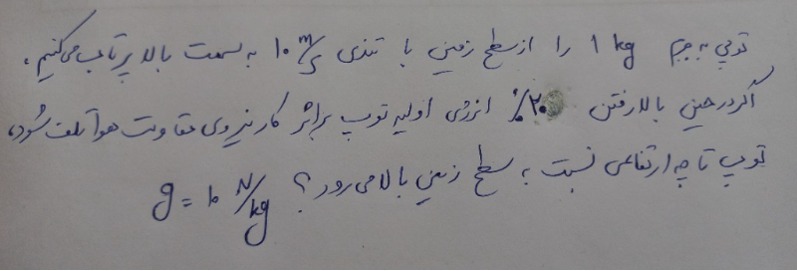 توپی به جرم 1 kg را از سطح زمین با تندی ۱۰ m/s به سمت بالا پرتاب می‌کنیم.
اگر در حین بالا رفتن ۲۰٪ انرژی اولیه توپ بر اثر کار نیروی مقاومت هوا تلف شود،
توپ تا چه ارتفاعی نسبت به سطح زمین بالا می‌رود؟ g = ۱۰ N/kg